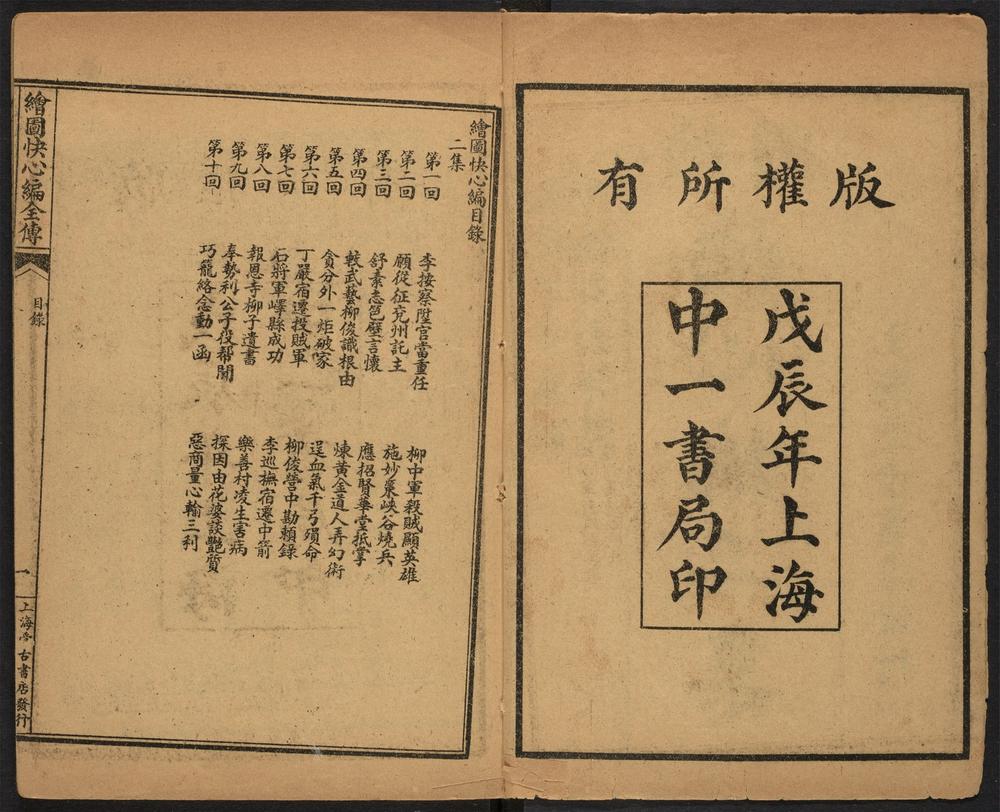 版權所有
戊辰年上海
中一書局印
繪圖快心編目錄
二集
第一回 李按察陞官當重任 柳中軍殺賊顯英雄
第二回 願從征兖州託主 施妙策峽谷燒兵
第三回 舒素志笆壁言懷 應招賢華堂抵掌
第四回 較武藝柳俊識根由 煉黃金道人弄幻術
第五回 貪分外一炬破家 逞血氣千弓殞命
第六回 丁嚴宿遷投賊軍 柳俊營中勘賴錄
第七回 石將軍嶧縣成功 李巡撫宿遷中箭
第八回 報恩寺柳子遺書 樂善村凌生害病
第九回 奉勢利公子役帮閒 探因由花婆談艷質
第十回 巧籠絡念動一函 惡商量心輸三利
繪圖快心編全傳
目錄
一
上海 古書店發行